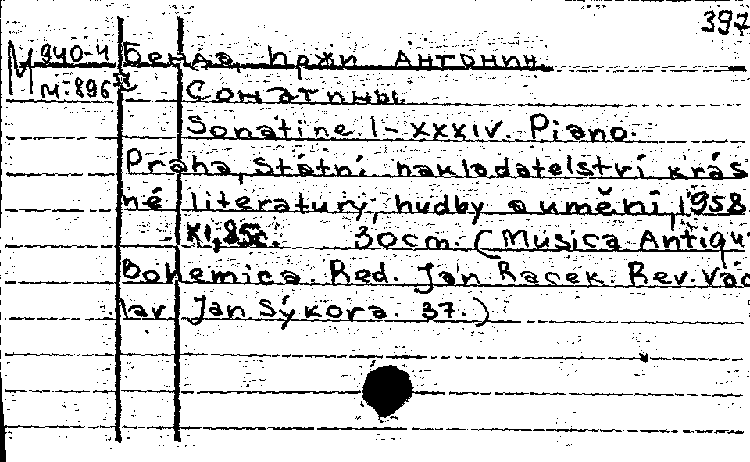 397
М 940-4 Бенда, Иржи Антонин.
М-896 Сонатины.
Sonatine I-XXXIV. Piano.
Praha, Státní nakladatelství krás
né literatury, hudby a umění, 1958
XI, 85c. 30cm. (Musica Antiqu
Bohemica. Red. Jan Racek. Rev. Vác
lav Jan Sýkora. 37.)